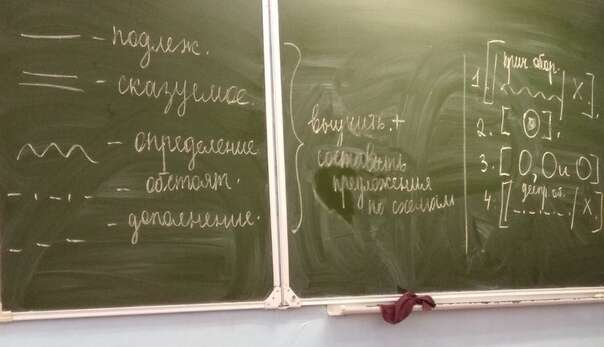 - подлеж.
- сказуемое.
- определение
- обстоят.
- дополнение.
выучить. +
составить
предложения
по схемам
1. [ | прич. обор. | X ].
2. [ В ].
3. [ О, О и О ]
4. [ | деепр. об. | X ].